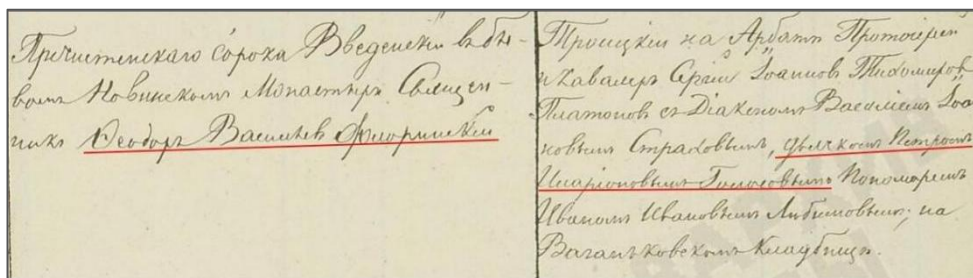 Пречистенскаго Сорока Введенскій въ бы-
вомъ Новинскомъ Монастырѣ Священ-
никъ Ѳеодоръ Васильевъ Флоринскій
Троицкій на Арбатѣ Протоіерей
и Кавалеръ Сергій Іоанновъ Тихомировъ
Платоновъ съ Діакономъ Василіемъ Іоа
новымъ Страховымъ, дьячкомъ Петромъ
Иларіоновымъ Голосовымъ Пономаремъ
Иваномъ Ивановымъ Любимовымъ; на
Ваганьковскомъ Кладбищѣ.